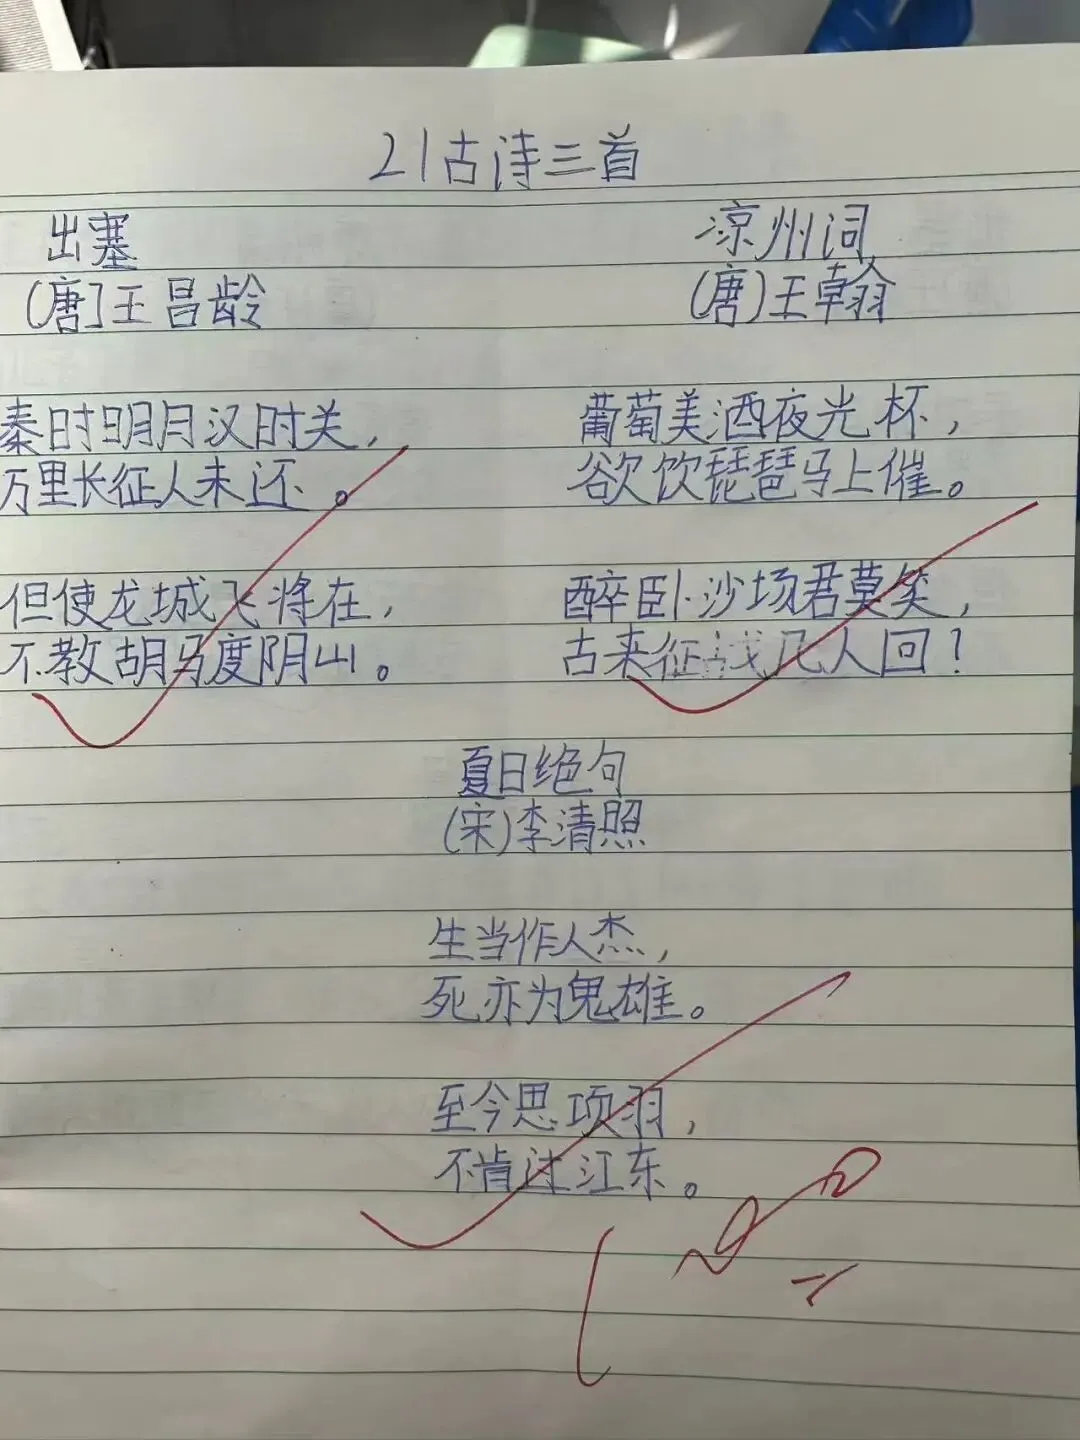 21古诗三首
出塞
(唐]王昌龄
秦时明月汉时关,
万里长征人未还。
但使龙城飞将在,
不教胡马度阴山。
凉州词
(唐)王翰
葡萄美酒夜光杯,
欲饮琵琶马上催。
醉卧沙场君莫笑,
古来征战几人回!
夏日绝句
(宋)李清照
生当作人杰,
死亦为鬼雄。
至今思项羽,
不肯过江东。